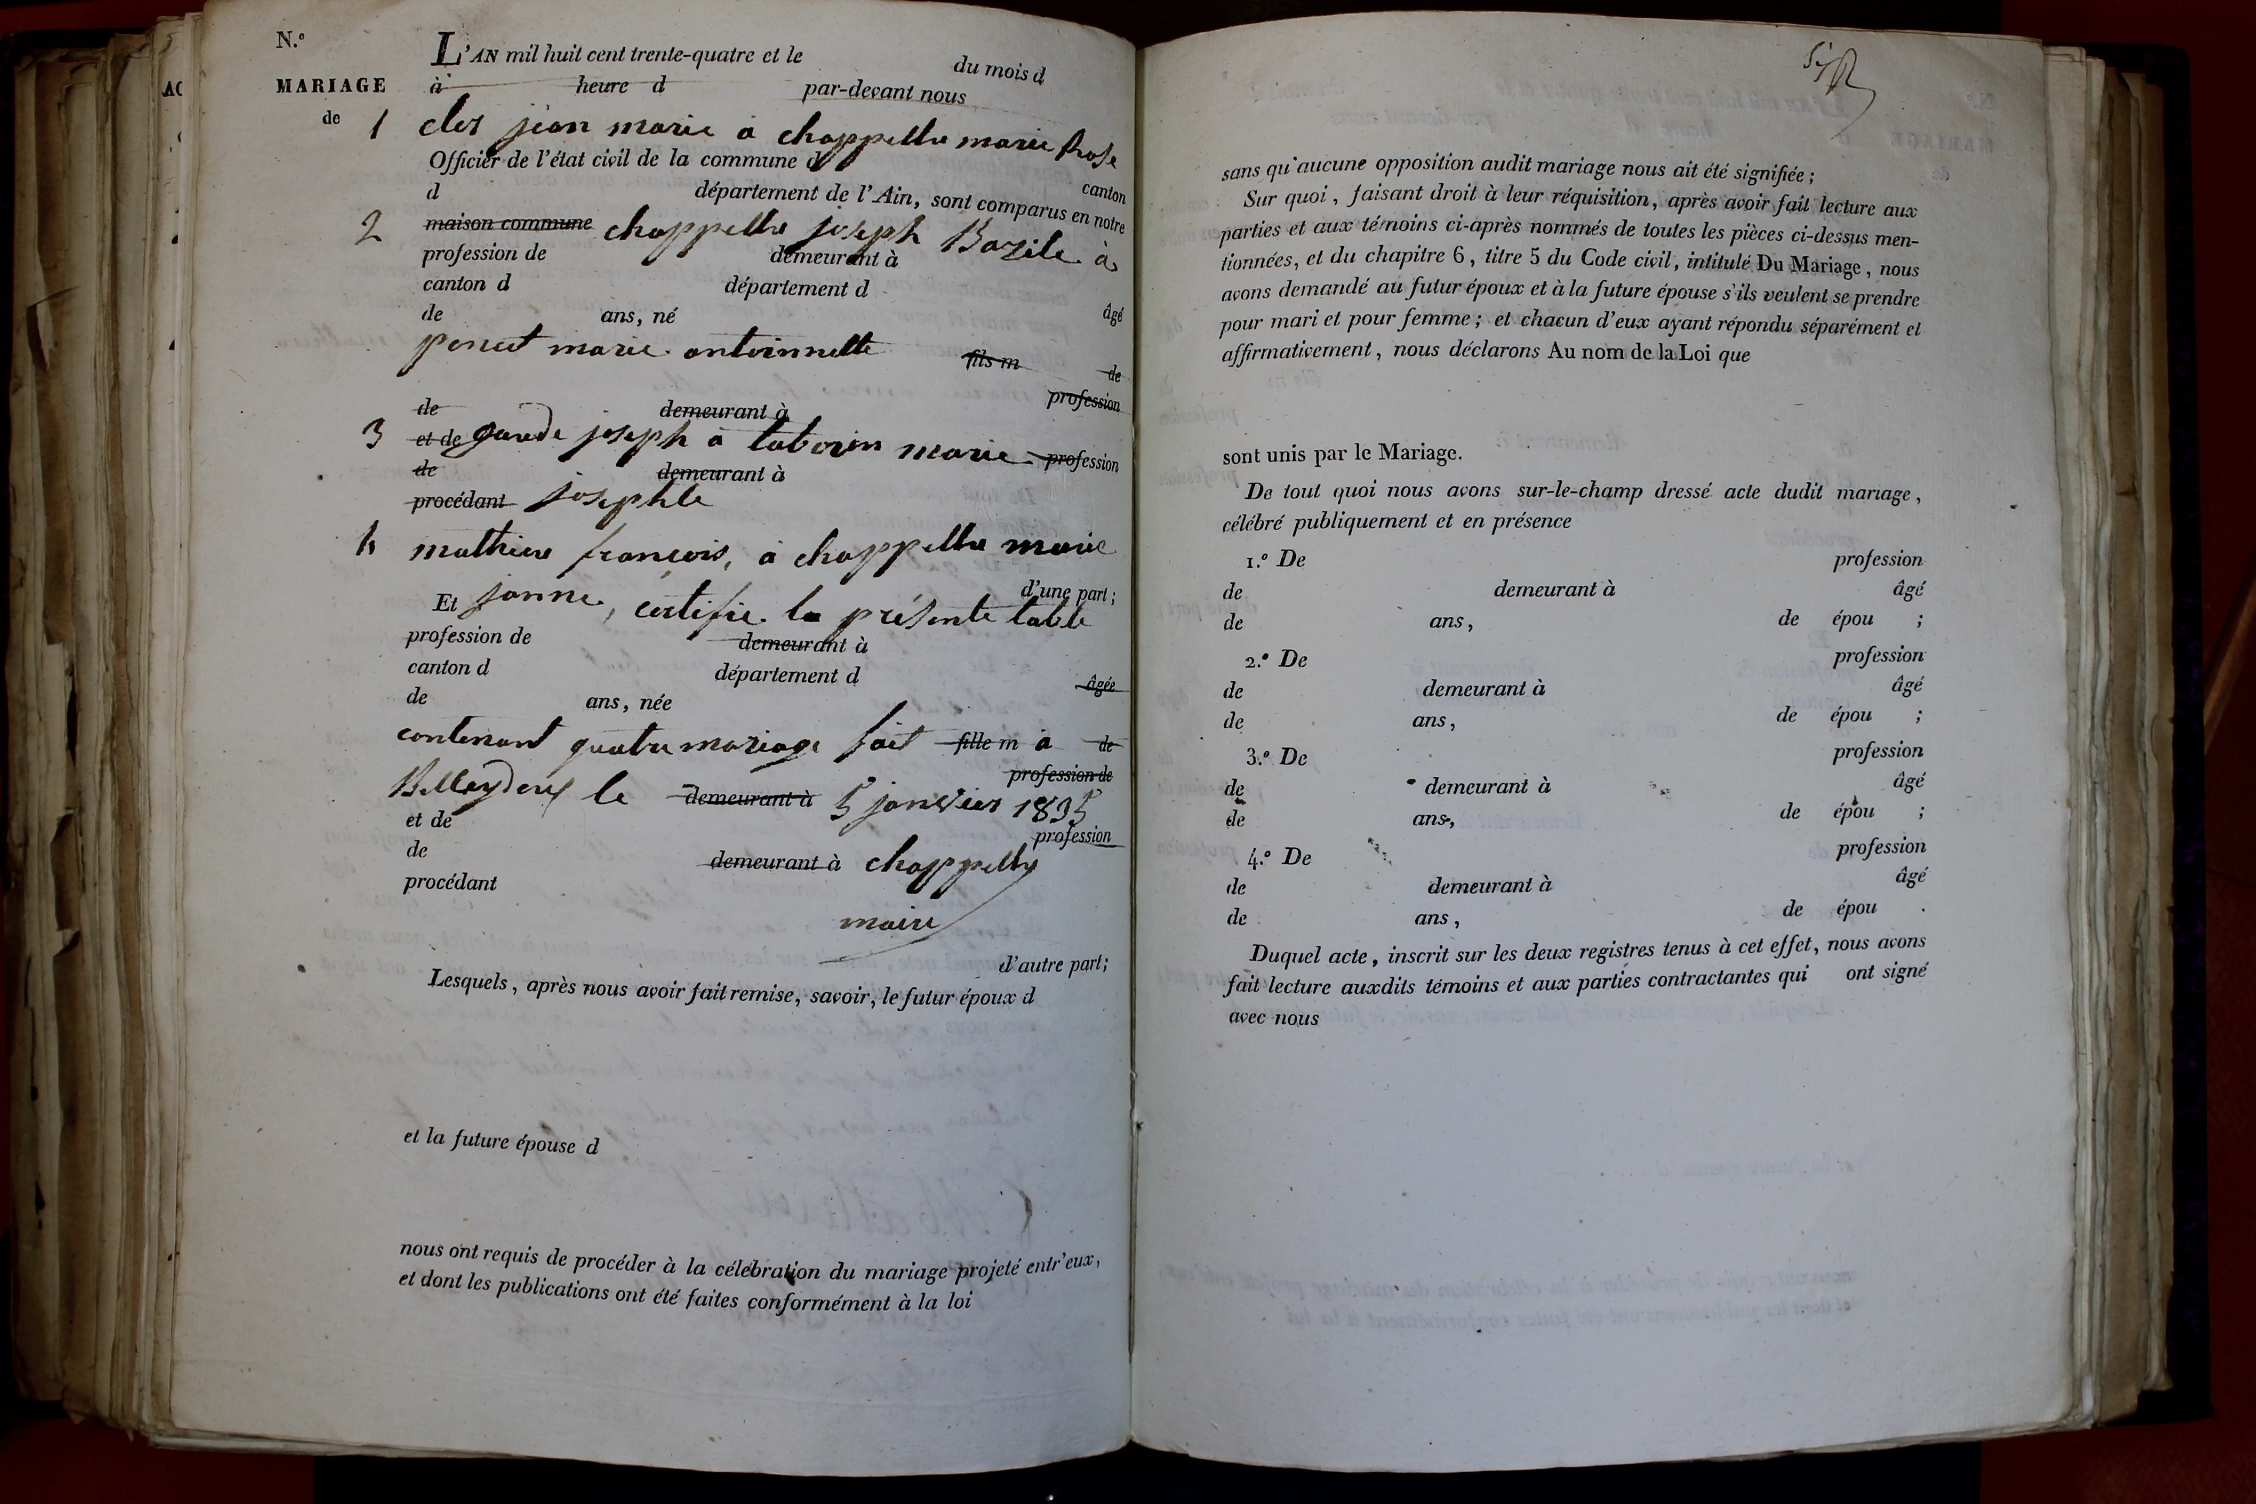 N.o
MARIAGE
de
L'AN mil huit cent trente-quatre et le du mois d
à heure d par-devant nous
1 cler jéan marie à chappellu marie Rose
Officier de l'état civil de la commune d
d département de l'Ain, sont comparus en notre canton
2 maison commune chappellu joseph Bazile à
profession de demeurant à
canton d département d
de ans, né âgé
poncet marie antoinnette fils m de
profession
de demeurant à
3 et de joseph à tabourin marie profession
de demeurant à
procédant josephte
4 mathieu françois, à chappellu marie
d'une part;
Et janne, certifie la présente table
profession de demeurant à
canton d département d
de ans, née âgée
contenant quatre mariage fait fille m a de
profession de
Belleydoux le demeurant à 5 janvier 1835
et de profession
de demeurant à chappellu
procédant
maire
d'autre part;
Lesquels, après nous avoir fait remise, savoir, le futur époux d
et la future épouse d
nous ont requis de procéder à la célébration du mariage projeté entr'eux,
et dont les publications ont été faites conformément à la loi
sans qu'aucune opposition audit mariage nous ait été signifiée;
Sur quoi, faisant droit à leur réquisition, après avoir fait lecture aux
parties et aux témoins ci-après nommés de toutes les pièces ci-dessus men-
tionnées, et du chapitre 6, titre 5 du Code civil, intitulé Du Mariage, nous
avons demandé au futur époux et à la future épouse s'ils veulent se prendre
pour mari et pour femme; et chacun d'eux ayant répondu séparément et
affirmativement, nous déclarons Au nom de la Loi que
sont unis par le Mariage.
De tout quoi nous avons sur-le-champ dressé acte dudit mariage,
célébré publiquement et en présence
1.o De profession
de demeurant à âgé
de ans, de épou ;
2.o De profession
de demeurant à âgé
de ans, de épou ;
3.o De profession
de demeurant à âgé
de ans, de épou ;
4.o De profession
de demeurant à âgé
de ans, de épou .
Duquel acte, inscrit sur les deux registres tenus à cet effet, nous avons
fait lecture auxdits témoins et aux parties contractantes qui ont signé
avec nous